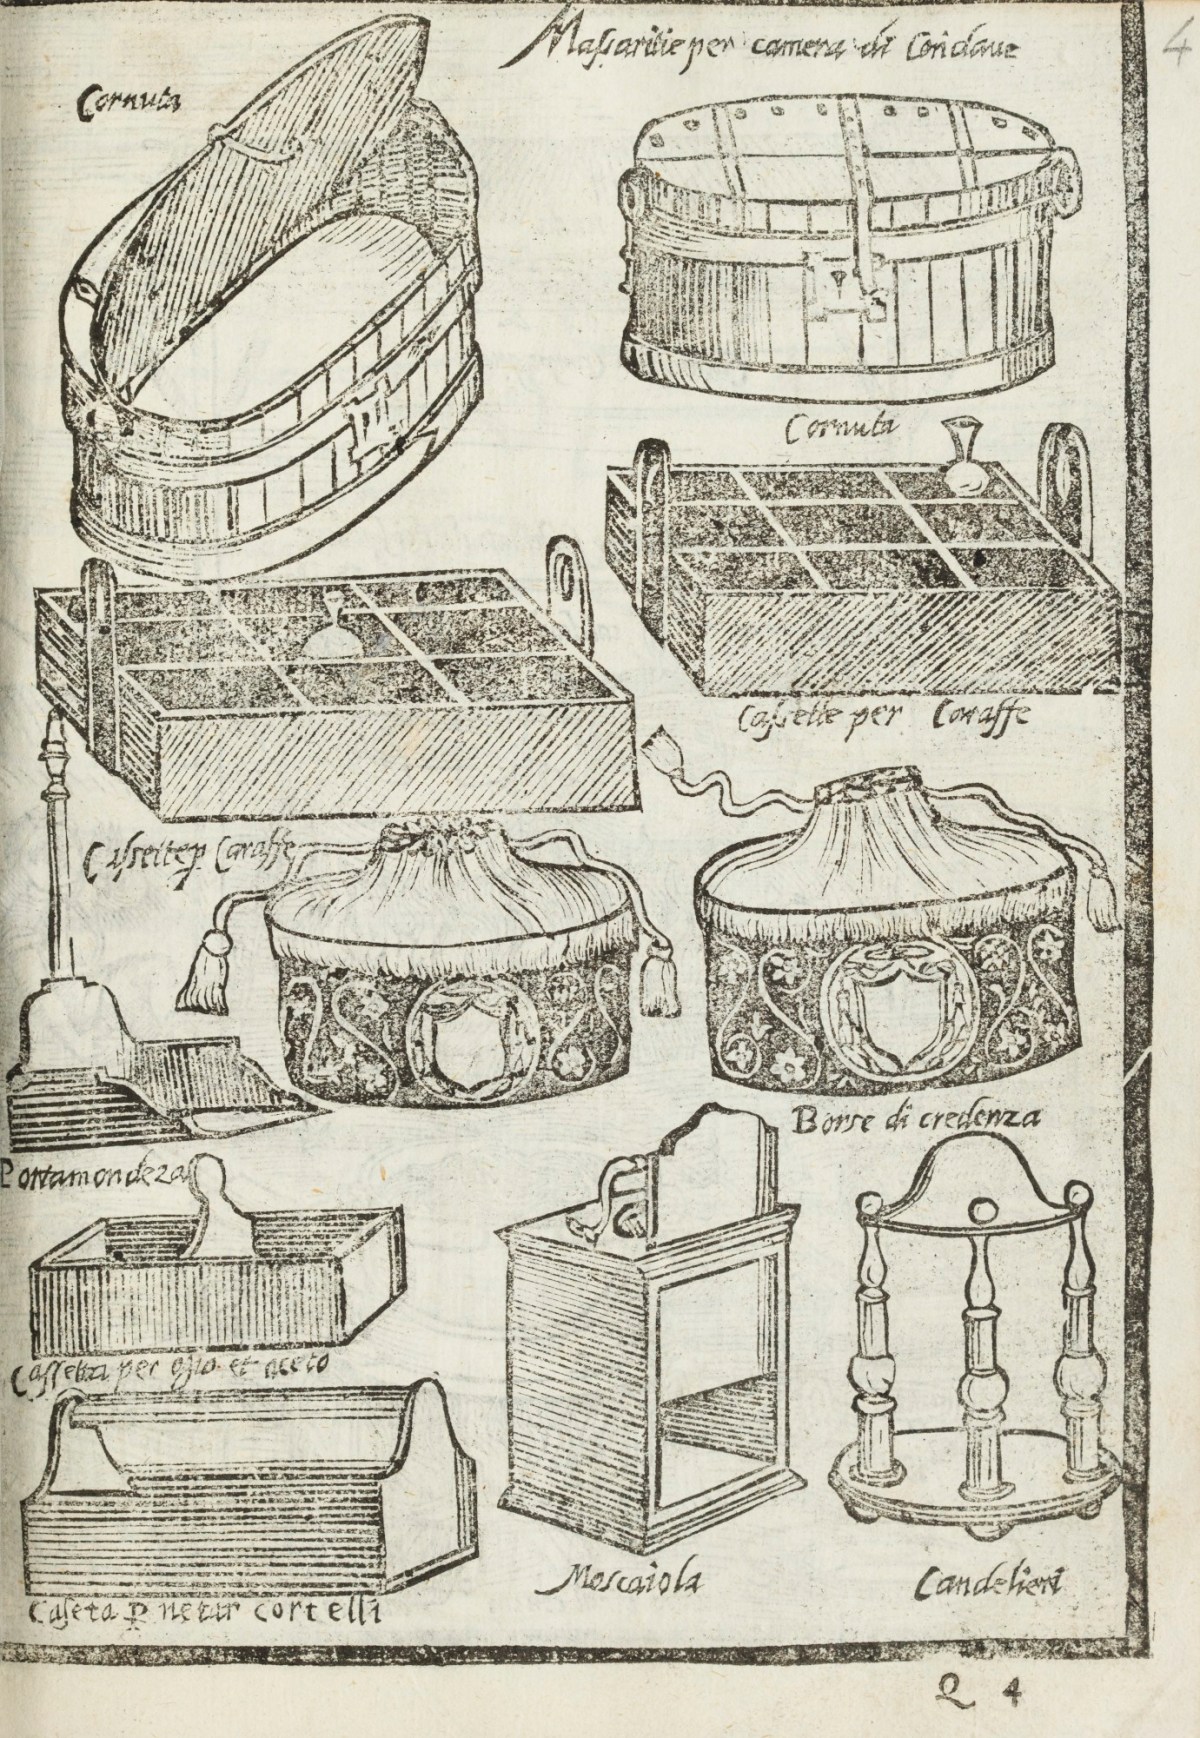 Massaritie per camera di Conclaue
4
Cornuta
Cornuta
Cassette per Caraffe
Cassette p̱ Caraffe
Borse di credenza
Portamondeza
Cassetta per oglio et aceto
Moscaiola
Candelieri
Caseta p̱ netar cortelli
Q 4